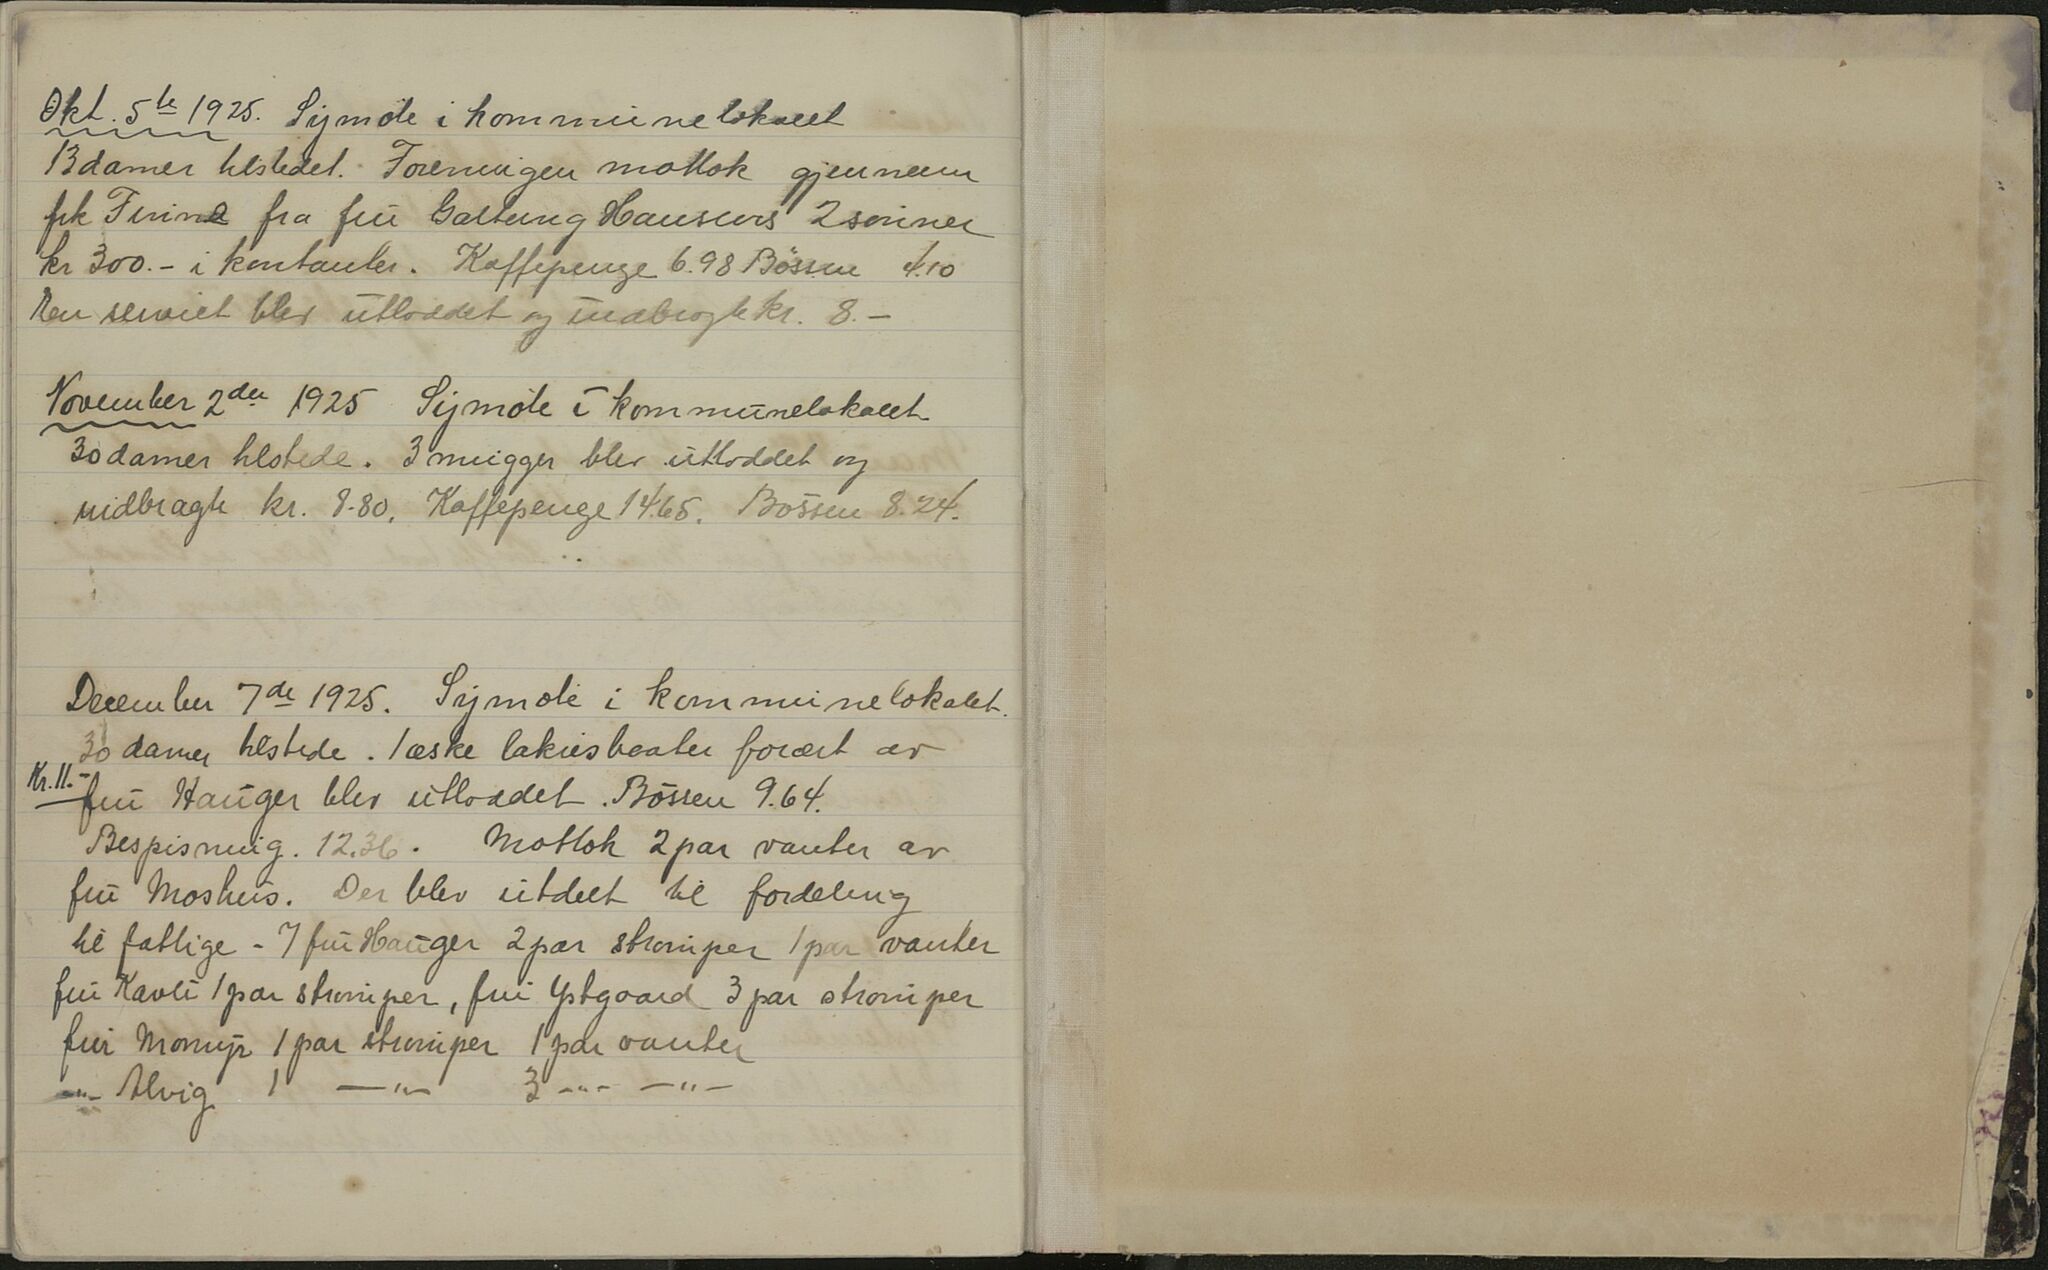 Okt. 5te 1925. Symøte i kommunelokalet
13 damer tilstedet. Foreningen mottok gjennem
frk Finne fra fru Galtung Hansens 2 sønner
kr 300.- i kontanter. Kaffepenge 6.98 Bössen 4.10
En serviet blev utloddet og indbragte kr. 8.-
November 2den 1925 Symøte i kommunelokalet
30 damer tilstede. 3 mugger blev utloddet og
indbragte kr. 8.80. Kaffepenge 14.65. Bössen 8.24.
December 7de 1925. Symøte i kommunelokalet.
30 damer tilstede. 1 æske lakrisbaater forært av
Kr. 11.-
fru Hauger blev utloddet. Bössen 9.64.
Bespisning. 12.36. Mottok 2 par vanter av
fru Moshus. Der blev utdelt til fordeling
til fattige - 7 fru Hauger 2 par strømper 1 par vanter
fru Kavli 1 par strømper, fru Ystgaard 3 par strømper
fru Momyr 1 par strømper 1 par vanter
-"- Alvig 1 -"- 3 -"- -"-